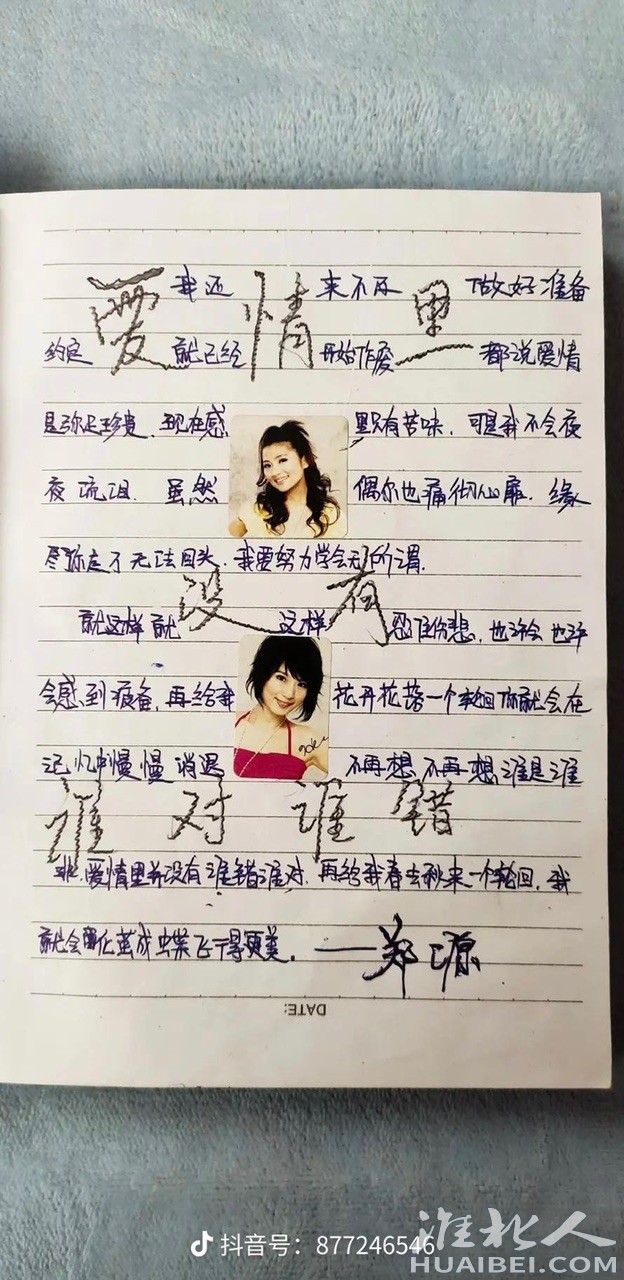 爱情里
我还 来不及 做好准备
约定 就已经 开始作废 都说爱情
是弥足珍贵、现在感 里只有苦味，可是我不会夜
夜流泪．虽然 偶尔也痛彻心扉．缘
尽你走了无法回头．我要努力学会无所谓．
没有
就这样 就 这样 忍住伤悲，也许会 也许
会感到疲惫，再给我 花开花落一个轮回你就会在
记忆中慢慢 消退 不再想 不再想 谁是谁
谁对谁错
非．爱情里并没有谁错谁对．再给我春去秋来一个轮回，我
就会化茧成蝶飞得更美。——郑源
DATE:
抖音号：877246546
淮北人
HUAIBEI.COM